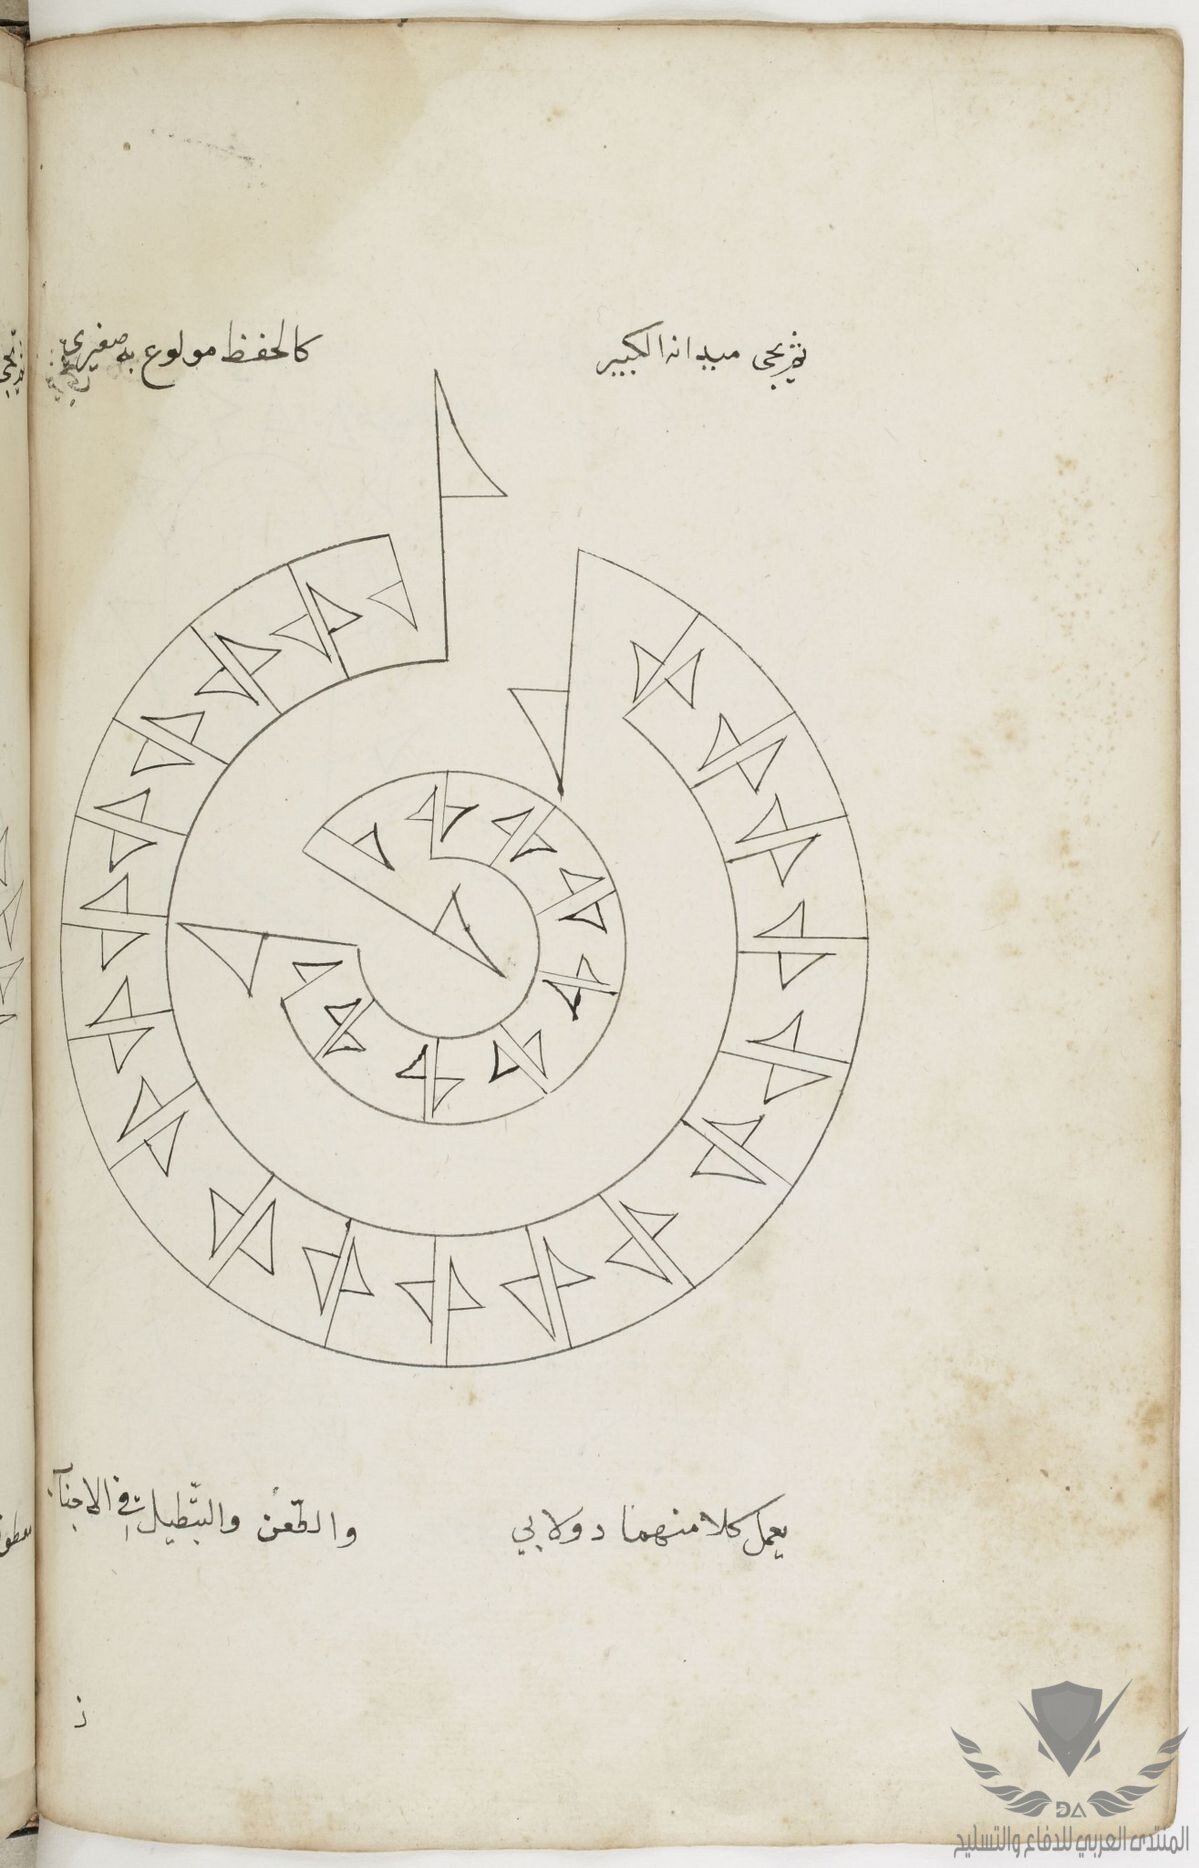 ثم يجى ميدانه الكبير
كالحفظ مولوع به صغيرى
يعمل كلا منهما دولابي
والطعن والتبطيل في الاجناب
ز
المنتدى العربي للدفاع والتسليح